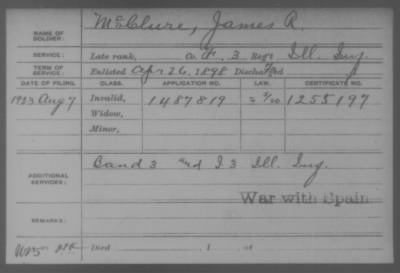 NAME OF SOLDIER: McClure, James R.
SERVICE: Late rank, Co. F, 3 Reg't Ill. Inf.
TERM OF SERVICE: Enlisted Apr 26, 1898 Discharged
DATE OF FILING. CLASS. APPLICATION NO. LAW. CERTIFICATE NO.
1923 Aug 7 Invalid, 1487819 1255197
Widow,
Minor,
ADDITIONAL SERVICES: Band 3 and I 3 Ill. Inf.
War with Spain
REMARKS:
Died , 1 , at